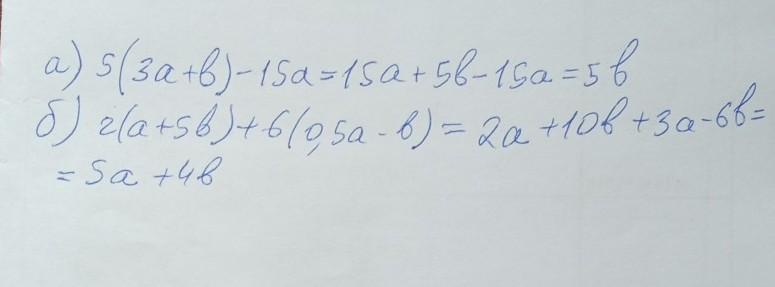 а) 5(3a+b)-15a=15a+5b-15a=5b
б) 2(a+5b)+6(0,5a-b)=2a+10b+3a-6b=
=5a+4b